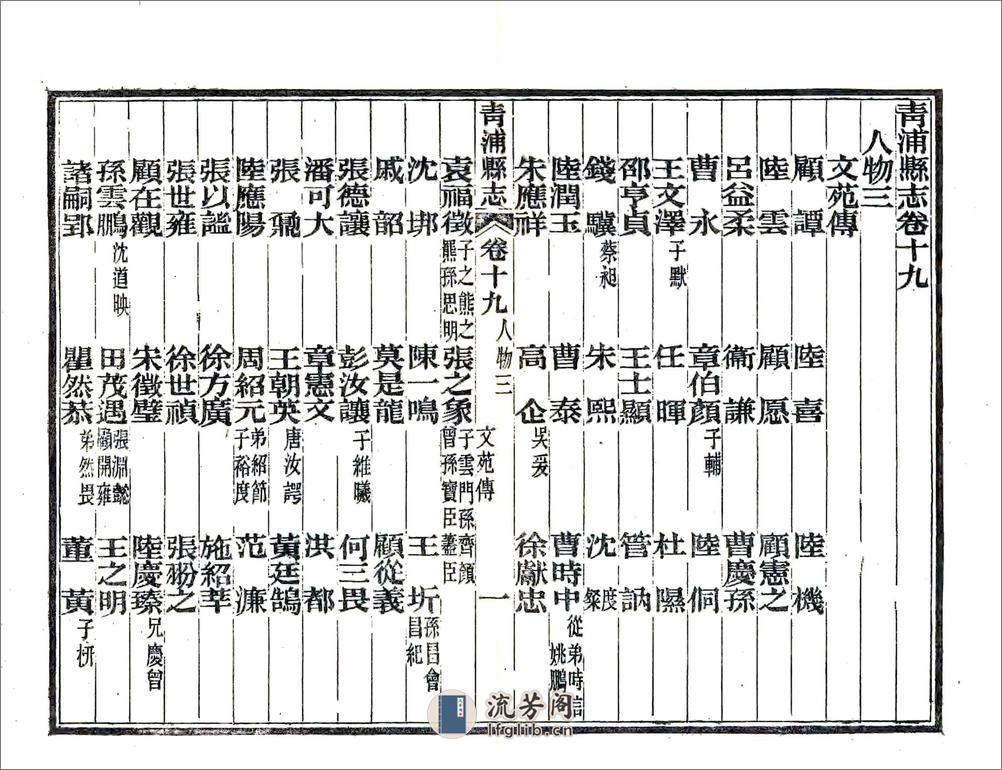 青浦縣志卷十九
人物三
文苑傳
顧譚 陸喜 陸機
陸雲 顧愿 顧憲之
呂益柔 衞謙 曹慶孫
曹永 章伯顏子輔 陸侗
王文澤子默 任暉 杜隰
邵亨貞 王士顯 管訥
錢驥蔡昶 朱熙 沈度粲
陸潤玉 曹泰 曹時中從弟時信姚鵬
朱應祥 高企吴爰 徐獻忠
青浦縣志 卷十九 人物三 文苑傳 一
袁福徵子之熊之熊孫思明 張之象子雲門孫齊顏曾孫寶臣藎臣
沈垹 陳一鳴 王圻孫昌會昌紀
戚韶 莫是龍 顧從義
張德讓 彭汝讓子維曦 何三畏
潘可大 章憲文 洪都
張鼐 王朝英唐汝諤 黃廷鵠
陸應陽 周紹元弟紹節子裕度 范濂
張以謐 徐方廣 施紹莘
張世雍 徐世禎 張翂之
顧在觀 宋徵璧 陸慶臻兄慶曾
孫雲鵬沈道映 田茂遇張淵懿顧開雍 王之明
諸嗣郢 瞿然恭弟然畏 董黃子枅
流芳阁
lfglib.cn